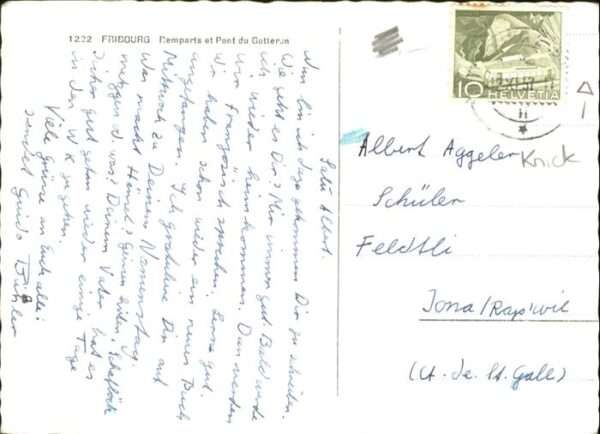 1222 FRIBOURG Remparts et Pont du Gotteron
Salü Albert.
Nun bin ich dazu gekommen Dir zu schreiben.
Wie geht es Dir? Mir immer gut. Bald werde
ich wieder heim kommen. Dann werden
wir Französisch sprechen.
Wir haben schon wieder ein neues Buch
angefangen. Ich gratuliere Dir auf
Mittwoch zu Deinem Namenstag.
Was macht Hensel? Einen guten
was? Deinem Vater hat es
sicher gut getan wieder einige Tage
in den W.K. zu gehen.
Viele Grüsse an Euch alle!
sendet Guido
10
HELVETIA
Albert Aggeler
Knick
Schüler
Feldtli
Jona/Rap'wil
(Ct. de St. Gall)